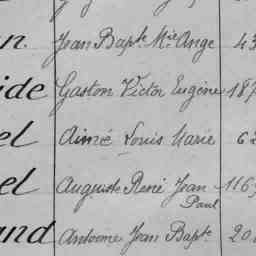 n. Jean Bapte Mie Ange 43
ide Gaston Victor Eugène 187
el Aimé Louis Marie 62
el Auguste René Jean 1169
Paul
and Antoine Jean Bapte 20